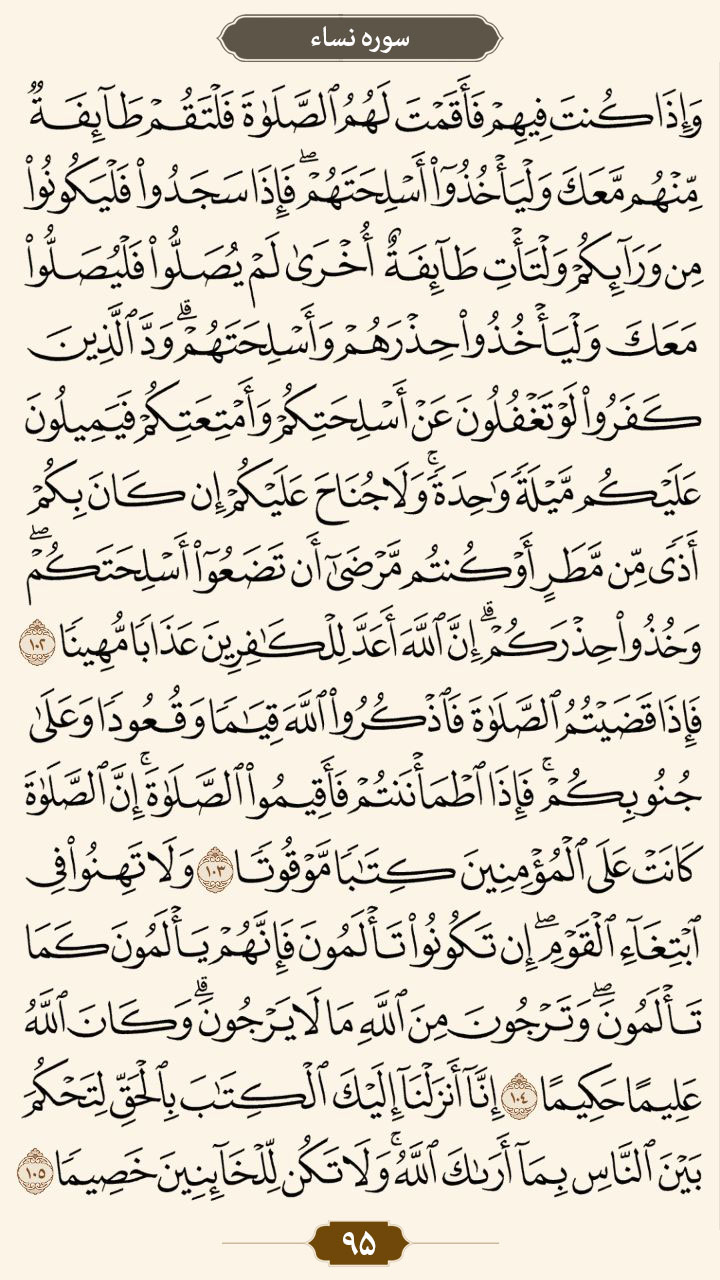 سوره نساء
وَإِذَا كُنتَ فِيهِمْ فَأَقَمْتَ لَهُمُ ٱلصَّلَوٰةَ فَلْتَقُمْ طَآئِفَةٌ
مِّنْهُم مَّعَكَ وَلْيَأْخُذُوٓا۟ أَسْلِحَتَهُمْۖ فَإِذَا سَجَدُوا۟ فَلْيَكُونُوا۟
مِن وَرَآئِكُمْ وَلْتَأْتِ طَآئِفَةٌ أُخْرَىٰ لَمْ يُصَلُّوا۟ فَلْيُصَلُّوا۟
مَعَكَ وَلْيَأْخُذُوا۟ حِذْرَهُمْ وَأَسْلِحَتَهُمْۗ وَدَّ ٱلَّذِينَ
كَفَرُوا۟ لَوْ تَغْفُلُونَ عَنْ أَسْلِحَتِكُمْ وَأَمْتِعَتِكُمْ فَيَمِيلُونَ
عَلَيْكُم مَّيْلَةً وَٰحِدَةًۚ وَلَا جُنَاحَ عَلَيْكُمْ إِن كَانَ بِكُمْ
أَذًى مِّن مَّطَرٍ أَوْ كُنتُم مَّرْضَىٰٓ أَن تَضَعُوٓا۟ أَسْلِحَتَكُمْۖ
وَخُذُوا۟ حِذْرَكُمْۗ إِنَّ ٱللَّهَ أَعَدَّ لِلْكَٰفِرِينَ عَذَابًا مُّهِينًا ١٠٢
فَإِذَا قَضَيْتُمُ ٱلصَّلَوٰةَ فَٱذْكُرُوا۟ ٱللَّهَ قِيَٰمًا وَقُعُودًا وَعَلَىٰ
جُنُوبِكُمْۚ فَإِذَا ٱطْمَأْنَنتُمْ فَأَقِيمُوا۟ ٱلصَّلَوٰةَۚ إِنَّ ٱلصَّلَوٰةَ
كَانَتْ عَلَى ٱلْمُؤْمِنِينَ كِتَٰبًا مَّوْقُوتًا ١٠٣ وَلَا تَهِنُوا۟ فِى
ٱبْتِغَآءِ ٱلْقَوْمِۖ إِن تَكُونُوا۟ تَأْلَمُونَ فَإِنَّهُمْ يَأْلَمُونَ كَمَا
تَأْلَمُونَۖ وَتَرْجُونَ مِنَ ٱللَّهِ مَا لَا يَرْجُونَۗ وَكَانَ ٱللَّهُ
عَلِيمًا حَكِيمًا ١٠٤ إِنَّآ أَنزَلْنَآ إِلَيْكَ ٱلْكِتَٰبَ بِٱلْحَقِّ لِتَحْكُمَ
بَيْنَ ٱلنَّاسِ بِمَآ أَرَىٰكَ ٱللَّهُۚ وَلَا تَكُن لِّلْخَآئِنِينَ خَصِيمًا ١٠٥
٩۵